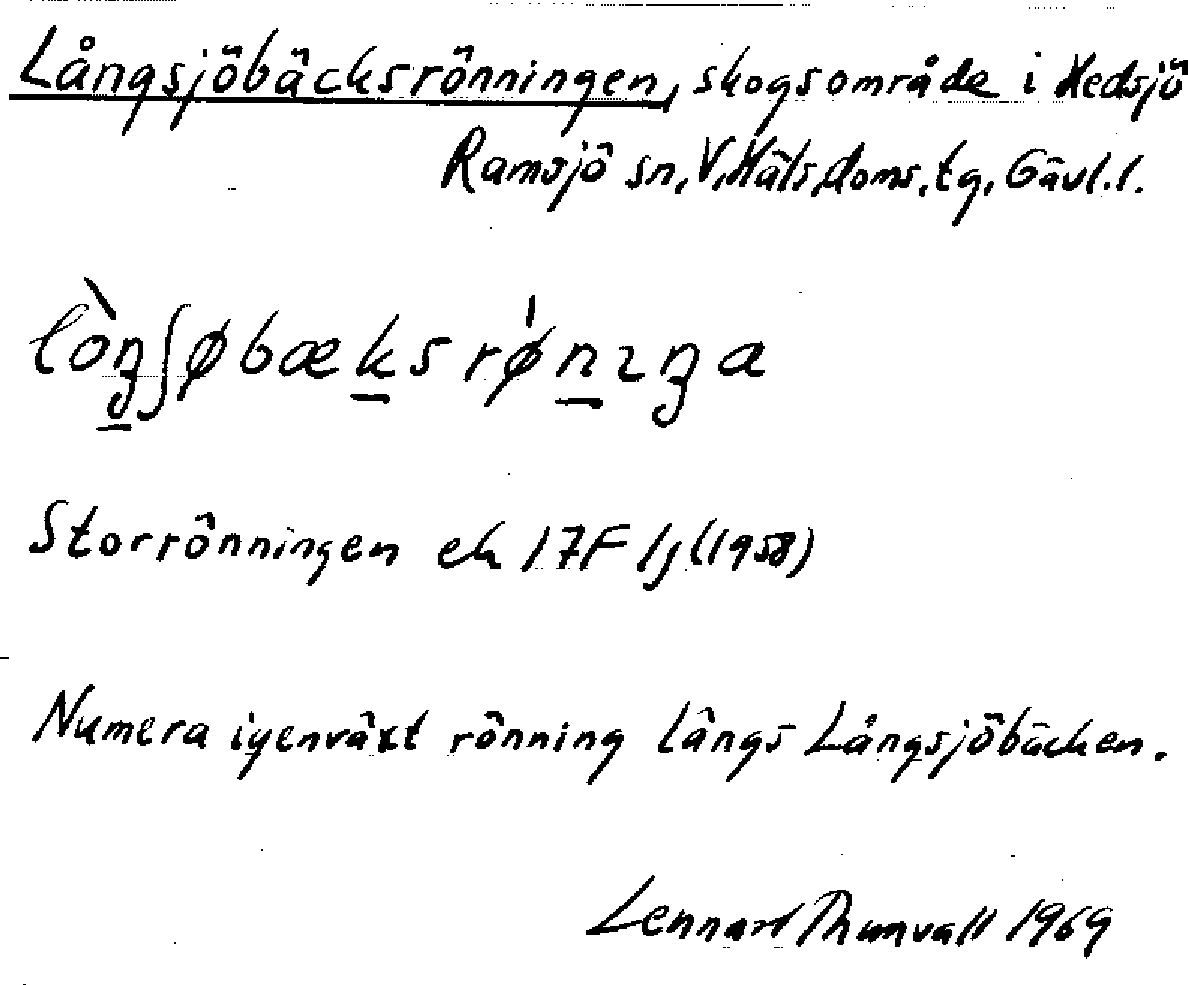 Långsjöbäcksrönningen, skogsområde i Hedsjö
Ramsjö sn, V. Häls. doms. tg, Gävl. l.
lòŋʃøbæksrǿnıŋa
Storrönningen ek 17F 1j (1958)
Numera igenväxt rönning längs Långsjöbäcken.
Lennart Thunvall 1969